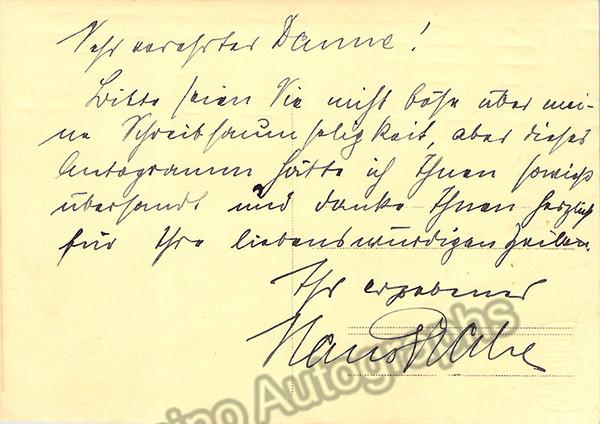 Sehr verehrter Damme!
Bitte seien Sie nicht böse über mei-
ne Schreibsaumseligkeit, aber dieses
Autogramm hätte ich Ihnen sowieso
übersandt und danke Ihnen herzlich
für Ihre liebenswürdigen Zeilen.
Ihr ergebener
Hans
ino Autographs